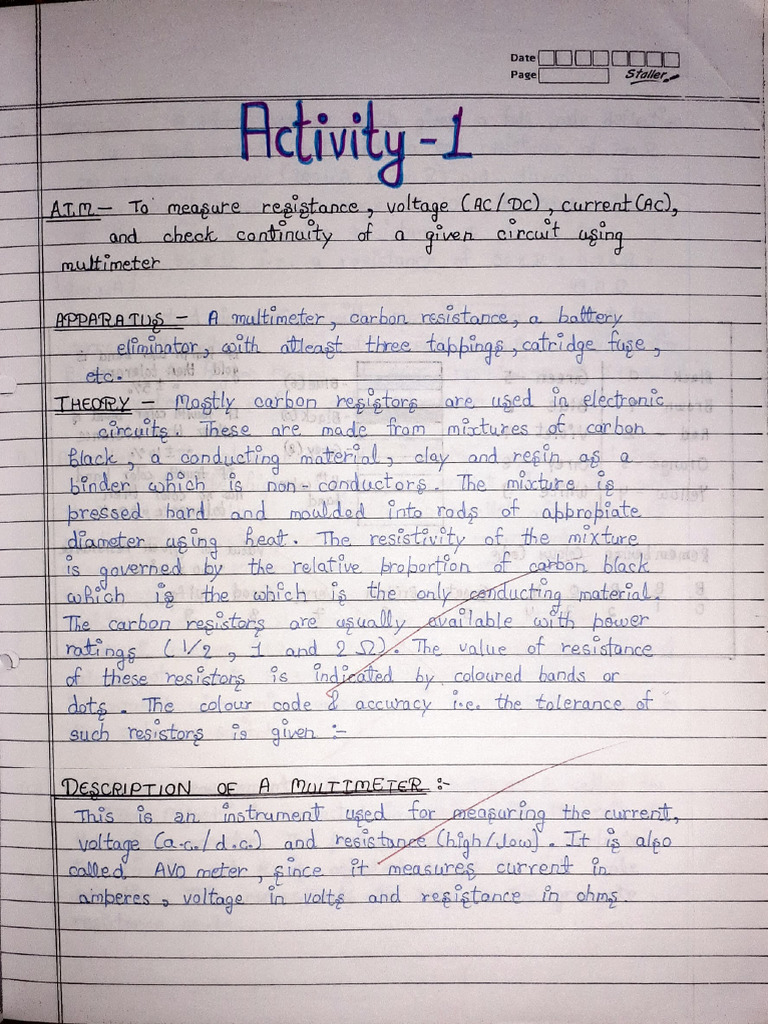 Date
Page Staller
Activity-1
AIM - To measure resistance, voltage (AC/DC), current (AC),
and check continuity of a given circuit using
multimeter
APPARATUS - A multimeter, carbon resistance, a battery
eliminator, with atleast three tappings, catridge fuse,
etc.
THEORY - Mostly carbon resistors are used in electronic
circuits. These are made from mixtures of carbon
black, a conducting material, clay and resin as a
binder which is non-conductors. The mixture is
pressed hard and moulded into rods of appropiate
diameter using heat. The resistivity of the mixture
is governed by the relative proportion of carbon black
which is the which is the only conducting material.
The carbon resistors are usually available with power
ratings (1/2, 1 and 2 Ω). The value of resistance
of these resistors is indicated by coloured bands or
dots. The colour code & accuracy i.e. the tolerance of
such resistors is given :-
DESCRIPTION OF A MULTIMETER :-
This is an instrument used for measuring the current,
voltage (a.c./d.c.) and resistance (high/low). It is also
called AVO meter, since it measures current in
amperes, voltage in volts and resistance in ohms.